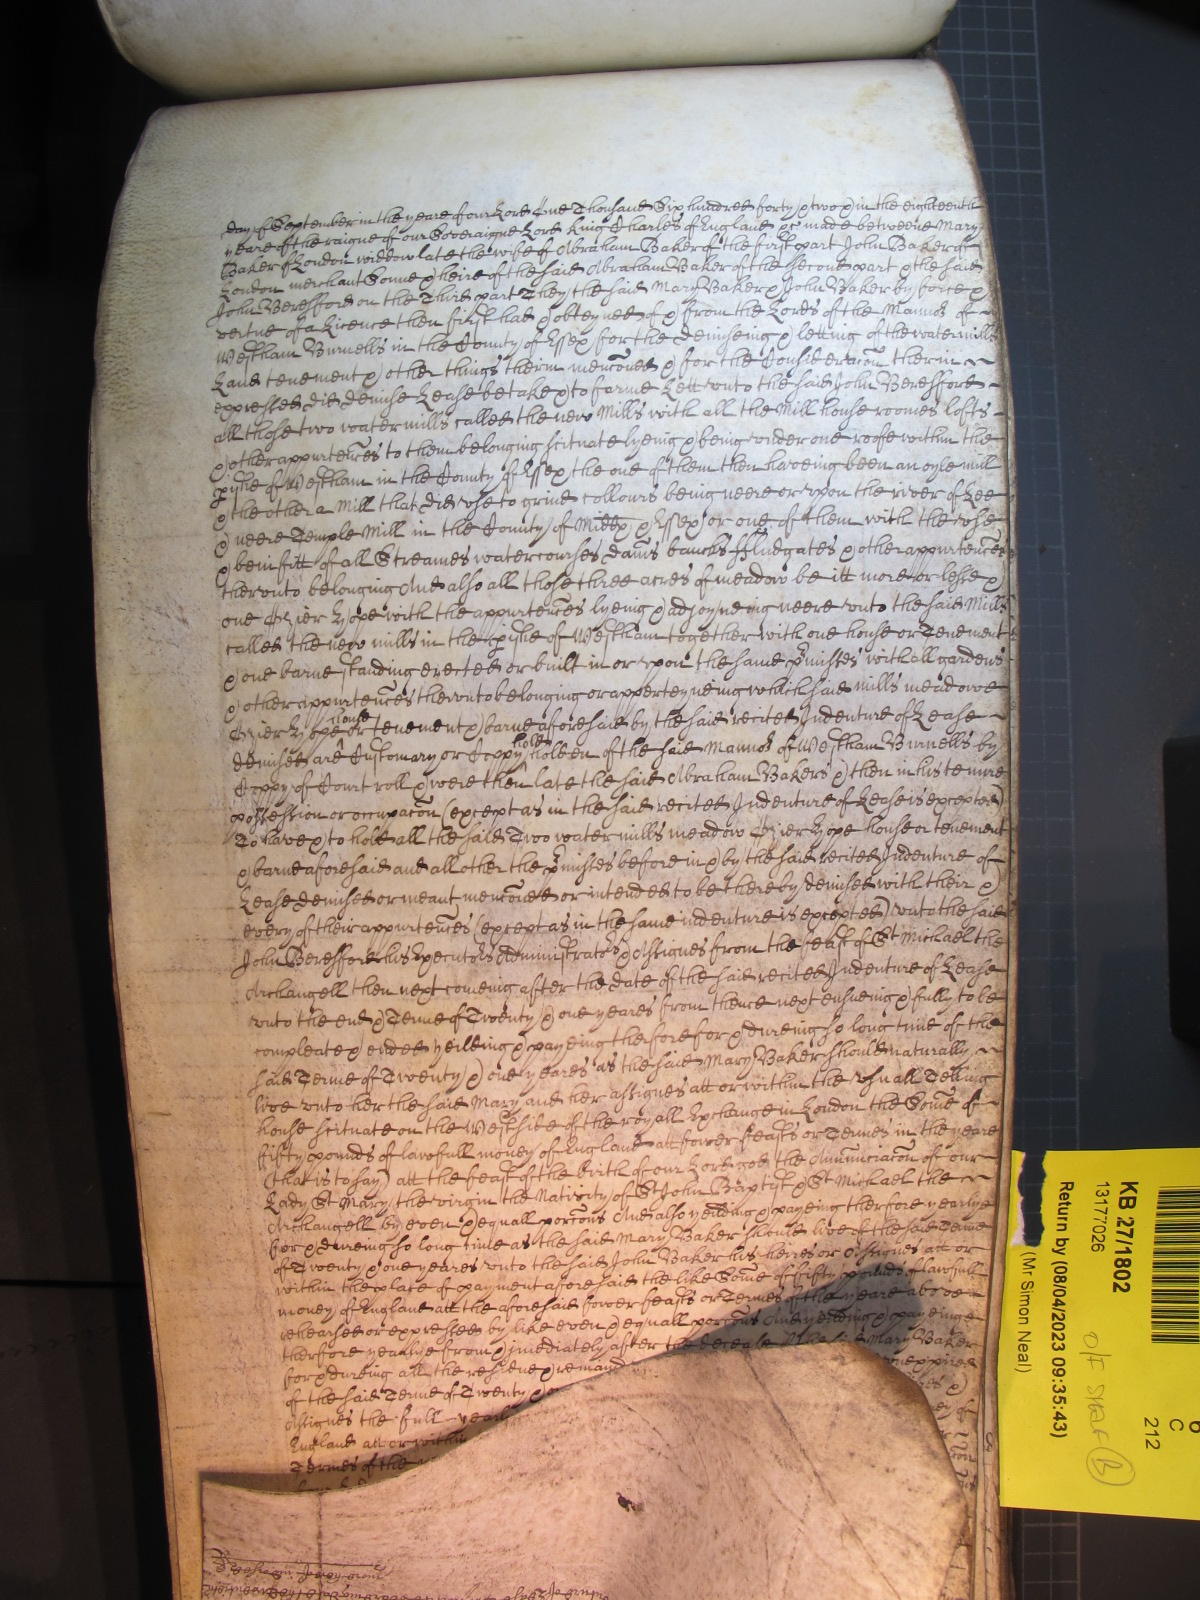 day of September in the yeare of our Lord One Thousand Six hundred forty & two & in the eighteenth
yeare of the raigne of our Soveraigne Lord King Charles of England &c made betweene Mary
Baker of London widdow late the wife of Abraham Baker of the first part John Baker of
London merchant Sonne & heire of the said Abraham Baker of the second part & the said
John Beresford on the Third part They the said Mary Baker & John Baker by force &
vertue of a Licence then first had & obteyned of & from the Lords of the Mannor of
Westham Burnells in the County of Essex for the demiseing & letting of the water mills
Land tenement & other things therin menconed & for the Consideracon therin
expressed did demise Lease betake & to farme Lett unto the said John Beresford
all those two water mills called the new Mills with all the Mill house roomes lofts
& other appurtences to them belonging scituate lyeing & being under one roofe within the
pishe of Westham in the County of Essex the one of them then haveing been an oyle mill
& the other a Mill that did use to grind collours being neere or upon the river of Lee
& neere Temple Mill in the County of Middx & Essex or one of them with the use
& benifitt of all Streames watercourses dams bancks ffludgates & other appurtences
therunto belonging And also all those three acres of meadow be itt more or lesse &
one Ozier Hope with the appurtences lyeing & adjoyneing neere unto the said Mills
called the new mills in the pishe of Westham together with one house or Tenement
& one barne standing erected or built in or upon the same pmisses with all gardens
& other appurtences therunto belonging or apperteyneing which said mills meadowe
Ozier Hope house or tenement & barne aforesaid by the said recited Indenture of Lease
demised are Customary or Coppyhold holden of the said Mannor of Westham Burnells by
Coppy of Court roll & were then late the said Abraham Bakers & then in his tenure
possession or occupacon (except as in the said recited Indenture of Lease is excepted)
To have & to hold all the said Two water mills meadow Ozier Hope house or tenement
& barne aforesaid and all other the pmisses before in & by the said recited Indenture of
Lease demised or meant menconed or intended to be thereby demised with their &
every of their appurtences (except as in the same indenture is excepted) unto the said
John Beresford his Executors Administrators & Assignes from the feast of St Michael the
Archangell then next comeing after the date of the said recited Indenture of Lease
unto the end & Terme of Twenty & one yeares from thence next ensueing & fully to be
compleate & ended yeilding & payeing therefore for & dureing so long time of the
said Terme of Twenty & one yeares as the said Mary Baker should naturally
live unto her the said Mary and her assignes att or within the usuall Telling
house scituate on the West side of the royall Exchange in London the Some of
fifty pounds of lawfull money of England att fower feasts or Termes in the yeare
(that is to say) att the feast of the birth of our Lord god the Annunciacon of our
Lady St Mary the virgin the Nativity of St John Baptist & St Michael the
Archangell by even & equall porcons And also yeilding & payeing therfore yearlye
for & dureing so long time as the said Mary Baker should live of the said Terme
of Twenty & one yeares unto the said John Baker his heires or Assignes att or
within the place of payment aforesaid the like Some of fifty pounds of lawfull
money of England att the aforesaid fower feasts or Termes of the yeare above
rehearsed or expressed by like even & equall porcons And yeilding & payeinge
therfore yearlye from & imediately after the decease of the said Mary Baker
for & dureing all the residue & remaind unexpired
of the said Terme of Twenty & one
Assignes the full yearly
England att or within
Termes of the
KB 27/1802
13177026
Return by (08/04/2023 09:35:43)
(Mr Simon Neal)
6
C
212
O/F STAF B